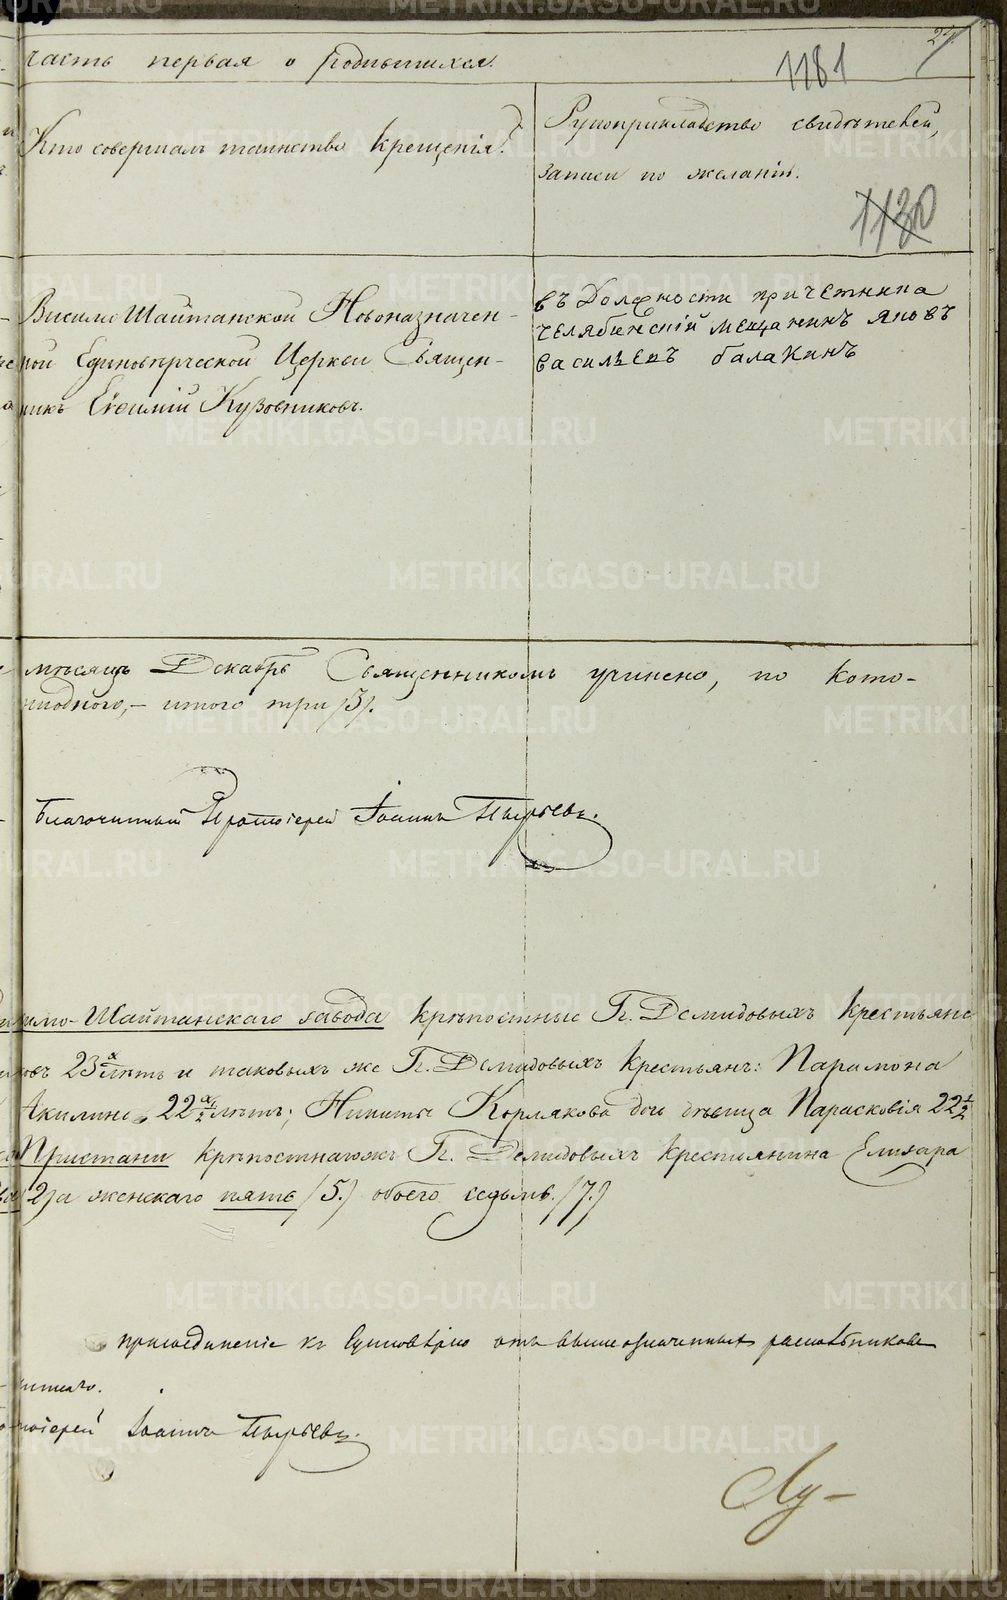 24.
часть первая о родившихся.
1181
Кто совершалъ таинство Крещенія?
Рукоприкладство свидѣтелей,
записи по желанію.
1130
Висимо Шайтанской Новоназначен-
ной Единовѣрческой Церкви Священ-
никъ Евѳимій Кузовниковъ.
въ Должности причетника
челябинский мещанинъ яковъ
васильевъ балакинъ
мѣсяцъ Декабрь Священникомъ учинено, по кото-
ниодного,- итого три /3/.
Благочинный Протоіерей Іоаннъ Пырьевъ.
имо-Шайтанскаго завода крѣпостные Гг. Демидовыхъ Крестьяне
23 лѣтъ и таковыхъ же Гг. Демидовыхъ Крестьянъ: Парамона
Акилина 22 1/2 лѣтъ; Никиты Кормякова дочь дѣвица Парасковія 22 1/2
Пристани крѣпостнагожъ Гг. Демидовыхъ крестьянина Елизара
/2/ а женскаго пять /5./ обоего седьмь. /7./
присоединеніе къ Единовѣрію отъ вышеозначенныхъ раскольниковъ
тоіерей Іоаннъ Пырьевъ.
METRIKI.GASO-URAL.RU